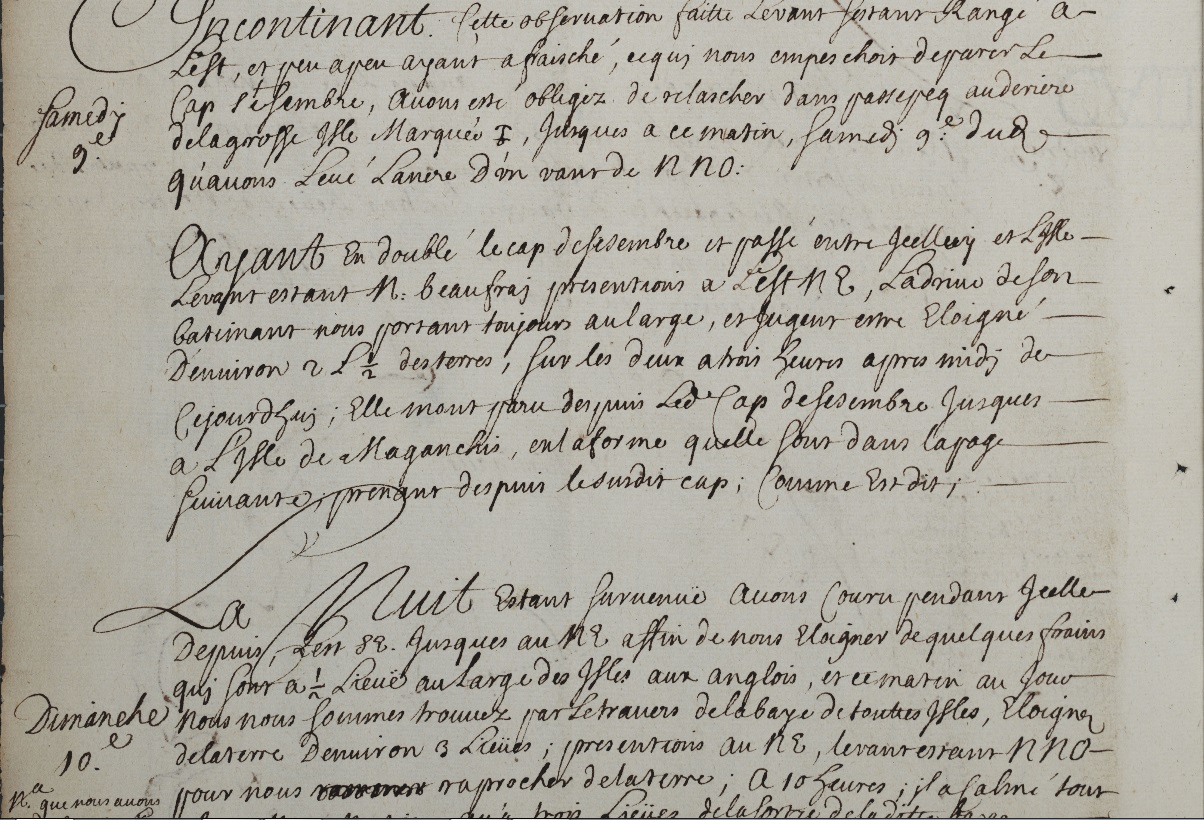 Incontinant. Cette observation faitte Levant sestant Rangé a
L'est, et peu a peu ayant afraisché, ce qui nous empeschoit deparer Le
Samedj
9.e
Cap Sesembre, avons esté obligez de relascher dans passepeq auderiere
delagrosse Isle Marquée I, Jusques a ce matin, Samedj 9.e dud
qu'avons Levé Lancre D'vn vant de NNO:
Ayant En doublé le cap desesembre et passé entre Jcelluy et L'Isle
Levant estant N: beaufrais presentions a L'est NE, Ladrive deson
batimant nous portant toujours aularge, et Jugent estre Eloigné
D'environ 2 L ½ desterres, sur les deux atrois heures apres midj de
Cejourdhuj; Elle mont paru despuis Led Cap desesembre Jusques
a L'Isle de Maganchis, enlaforme quelle sont dans lapage
suivante, prenant despuis lesusdit cap; Comme Est dit;
La Nuit Estant survenuë avons Couru pendant Jcelle
Depuis, Lest SE. Jusques au NE affin de nous Eloigner dequelques frains
quj sont a ½ Lieuë aularge des Isles aux anglois, et ce matin au Jour
Dimanche
10.e
Nous nous sommes trouvez par Letravers delabaye detouttes Isles, Eloignez
delaterre Denviron 3 Lieües; presentions au NE, levant estant NNO
pour nous raprocher delaterre; A 10 heures; jl a Calmé tout
N.a que nous avons
qu'a trois Lieües delasortie deladitte baye